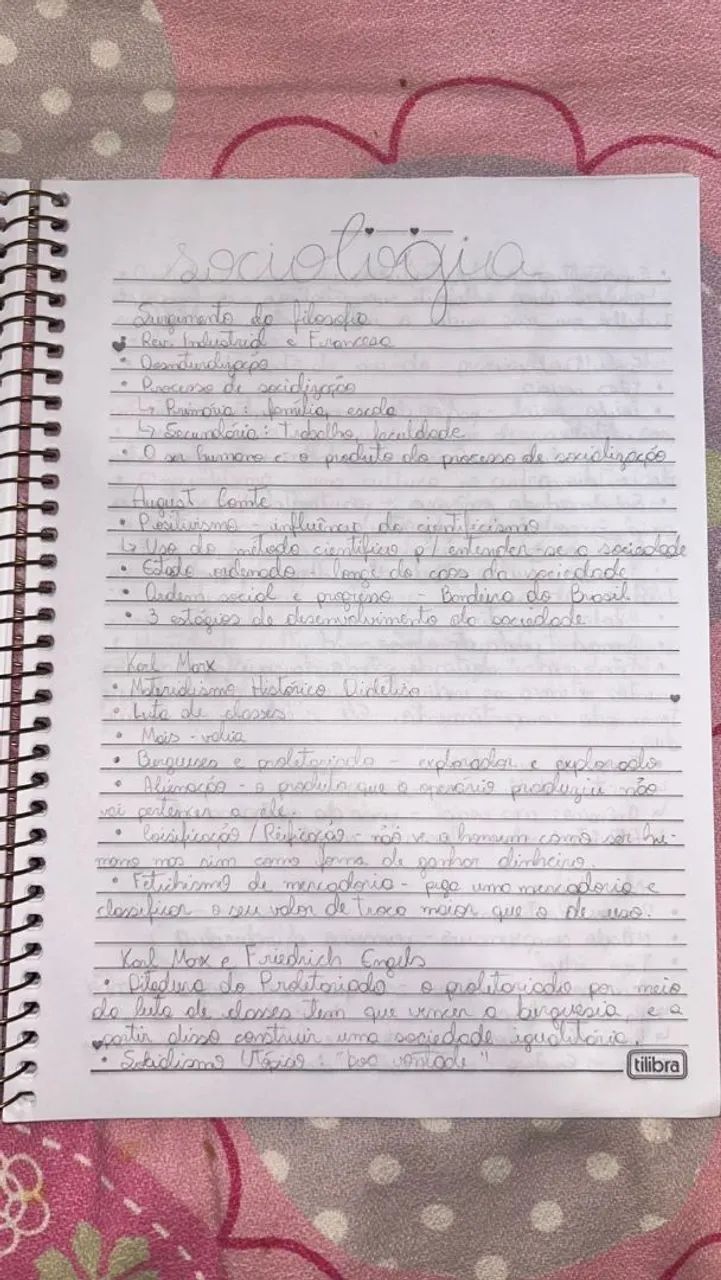 sociologia
Surgimento da filosofia
Rev. Industrial e Francesa
• Desnaturalização
• Processo de socialização
↳ Primária: família, escola
↳ Secundária: trabalho, faculdade
• O ser humano é o produto do processo de socialização
August Comte
• Positivismo - influência do cientificismo
↳ Uso do método científico p/ entender-se a sociedade
• Estado ordenado longe do caos da sociedade
• Ordem social e progresso - Bandeira do Brasil
• 3 estágios de desenvolvimento da sociedade
Karl Marx
• Materialismo Histórico Dialético
• Luta de classes
• Mais-valia
• Burgueses e proletariado - explorador e explorado
• Alienação - o produto que o operário produziu não
vai pertencer a ele.
• Coisificação / Reificação - não vê o homem como ser hu-
mano mas sim como forma de ganhar dinheiro.
• Fetichismo de mercadoria - pega uma mercadoria e
classificar o seu valor de troca maior que o de uso.
Karl Max e Friedrich Engels
• Ditadura do Proletariado - o proletariado por meio
da luta de classes tem que vencer a burguesia, e a
partir disso construir uma sociedade igualitária.
• Socialismo Utópico: "boa vontade"
tilibra